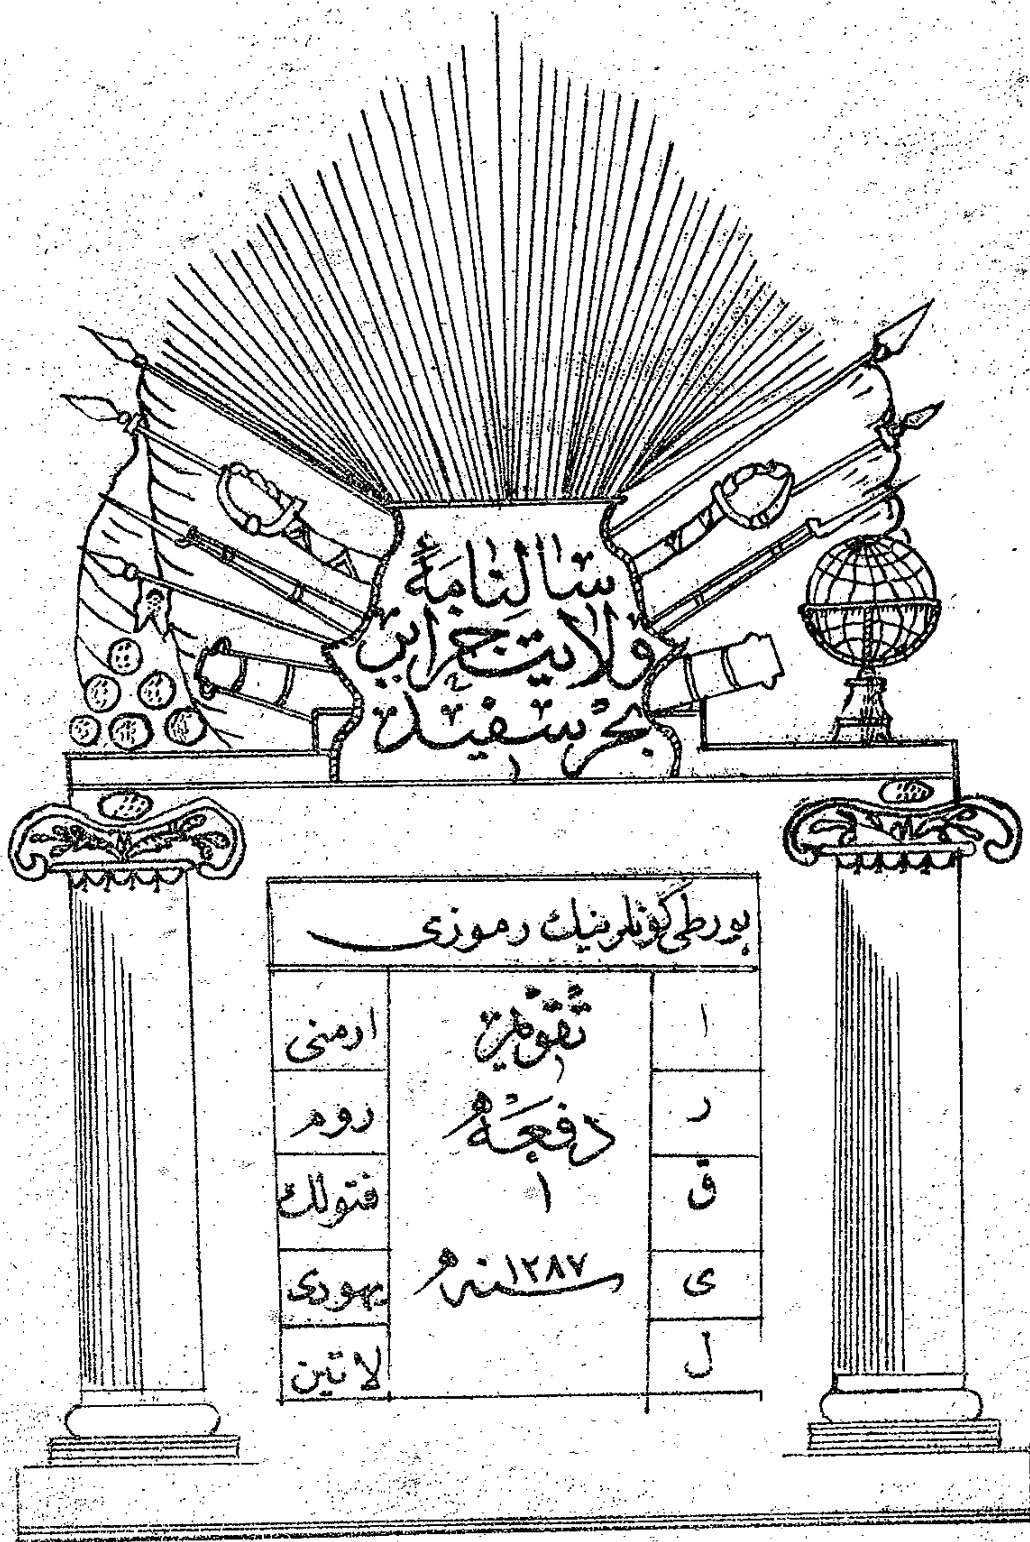 سالنامهٔ
ولايت جزاير
بحر سفيد
١
يورطى كونلرينك رموزى
ا ارمنى
ر روم
ق قتولك
ى يهودى
ل لاتين
تقويم
دفعه
١
سنه ١٢٨٧